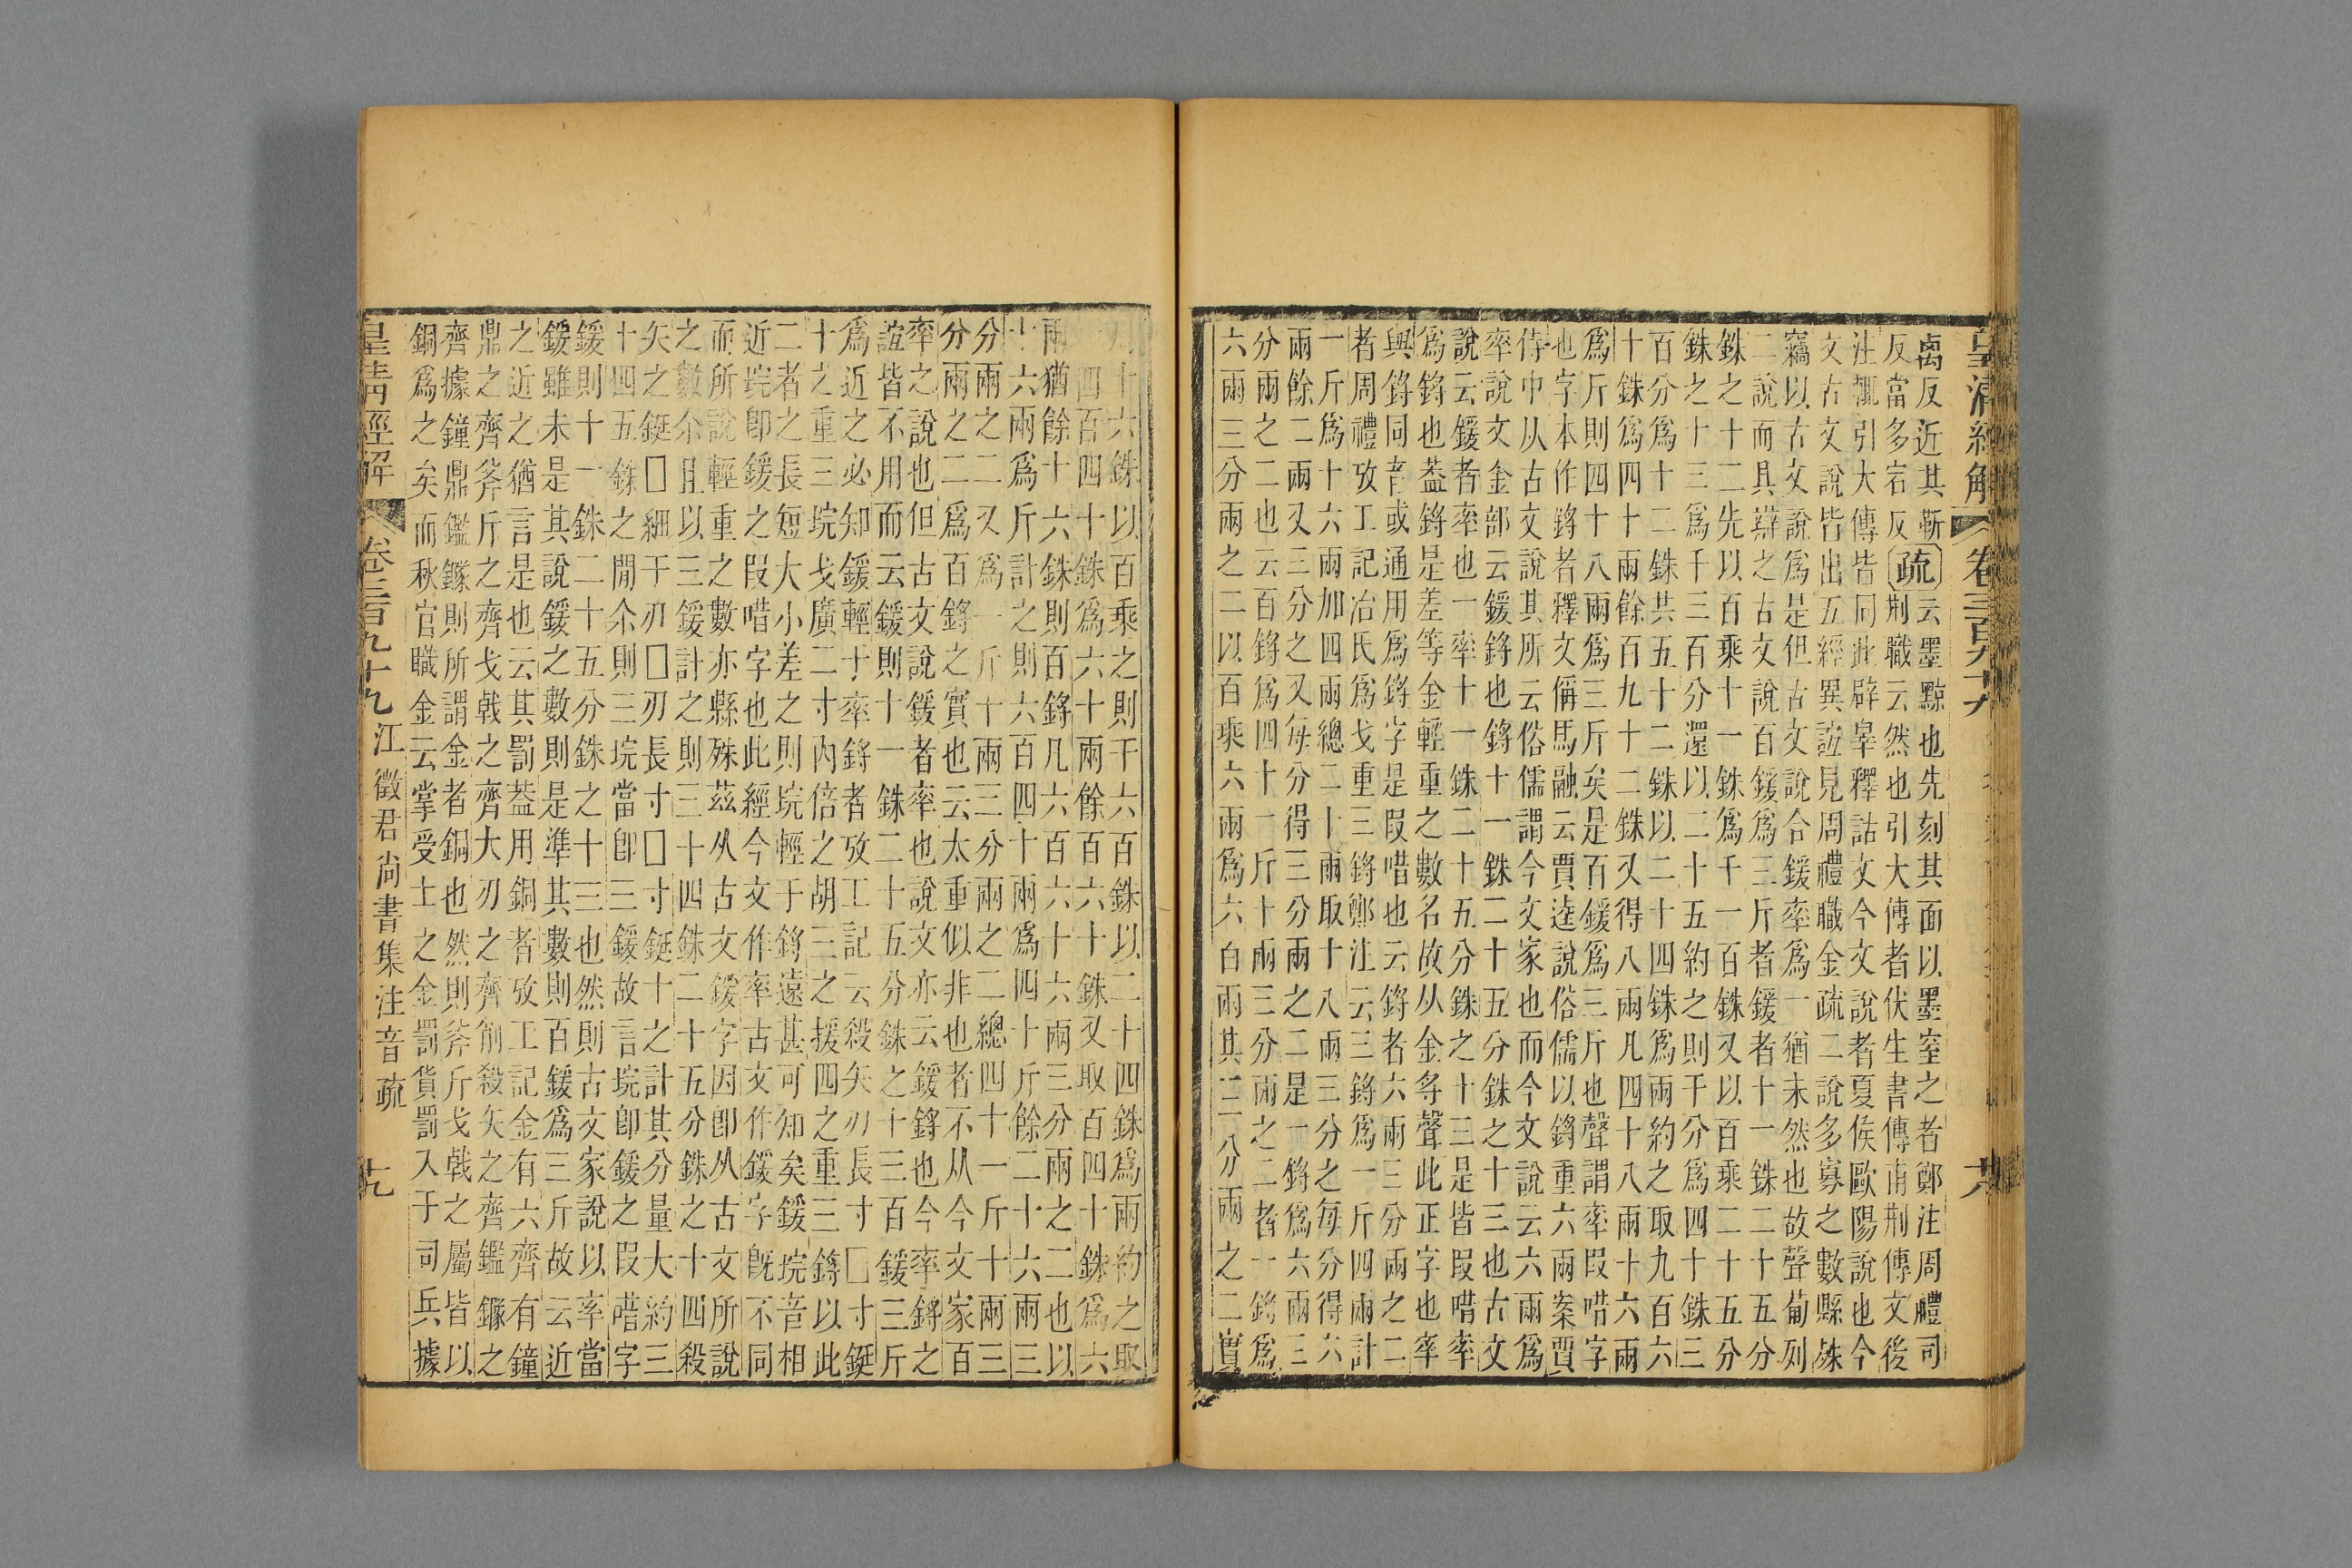 皇清經解 卷三百九十九 大
禼反近其靳疏云墨黥也先刻其面以墨窒之者鄭注周禮司
反當多宕反荆職云然也引大傳者伏生書傳甫荆傳文後
注瓾引大傳皆同此辟辠釋詁文今文說者夏矦歐陽說也今
文古文說皆出五經異誼見周禮職金疏二說多寡之數縣殊
竊以古文說爲是但古文說合鍰率爲一猶未然也故聲葡列
二說而具辯之古文說百鍰爲三斤者鍰者十一銖二十五分
銖之十二先以百乘十一銖爲千一百銖又以百乘二十五分
銖之十三爲千三百分還以二十五約之則千分爲四十銖三
百分爲十二銖共五十二銖以二十四銖爲兩約之取九百六
十銖爲四十兩餘百九十二銖又得八兩凡四十八兩十六兩
爲斤則四十八兩爲三斤矣是百鍰爲三斤也聲謂率叚唶字
也字本作鋝者釋文偁馬融云賈逵說俗儒以鋝重六兩案賈
侍中从古文說其所云俗儒謂今文家也而今文說云六兩爲
率說文金部云鍰鋝也鋝十一銖二十五分銖之十三也古文
說云鍰者率也一率十一銖二十五分銖之十三是皆叚唶率
爲鋝也葢鋝是差等金輕重之數名故从金寽聲此正字也率
與鋝同音或通用爲鋝字是叚唶也云鋝者六兩三分兩之二
者周禮攷工記冶氏爲戈重三鋝鄭注云三鋝爲一斤四兩計
一斤爲十六兩加四兩總二十兩取十八兩三分之每分得六
兩餘二兩又三分之又每分得三分兩之二是一鋝爲六兩三
分兩之二也云百鋝爲四十一斤十兩三分兩之二者一鋝爲
六兩三分兩之二以百乘六兩爲六百兩其三分兩之二實
十六銖以百乘之則千六百銖以二十四銖爲兩約之取
四百四十銖爲六十兩餘百六十銖又取百四十銖爲六
兩猶餘十六銖則百鋝凡六百六十六兩三分兩之二也以
十六兩爲斤計之則六百四十兩爲四十斤餘二十六兩三
分兩之二又爲一斤十兩三分兩之二總四十一斤十兩三
分兩之二爲百鋝之實也云太重似非也者不从今文家百
率之說也但古文說鍰者率也說文亦云鍰鋝也今率鋝之
誼皆不用而云鍰則十一銖二十五分銖之十三百鍰三斤
爲近之必知鍰輕于率鋝者攷工記云殺矢刃長寸□寸鋌
十之重三垸戈廣二寸內倍之胡三之援四之重三鋝以此
二者之長短大小差之則垸輕于鋝遠甚可知矣鍰垸音相
近垸卽鍰之叚唶字也此經今文作率古文作鍰字旣不同
而所說輕重之數亦縣殊茲从古文鍰字因卽从古文所說
之數尒且以三鍰計之則三十四銖二十五分銖之十四殺
矢之鋌□細于刃□刃長寸□寸鋌十之計其分量大約三
十四五銖之閒尒則三垸當卽三鍰故言垸卽鍰之叚唶字
鍰則十一銖二十五分銖之十三也然則古文家說以率當
鍰雖未是其說鍰之數則是準其數則百鍰爲三斤故云近
之近之猶言是也云其罰葢用銅者攷工記金有六齊有鐘
鼎之齊斧斤之齊戈戟之齊大刃之齊削殺矢之齊鑑鐩之
齊據鐘鼎鑑鐩則所謂金者銅也然則斧斤戈戟之屬皆以
銅爲之矣而秋官職金云掌受士之金罰貨罰入于司兵據
皇清經解 卷三百九十九 江徵君尚書集注音疏 十九